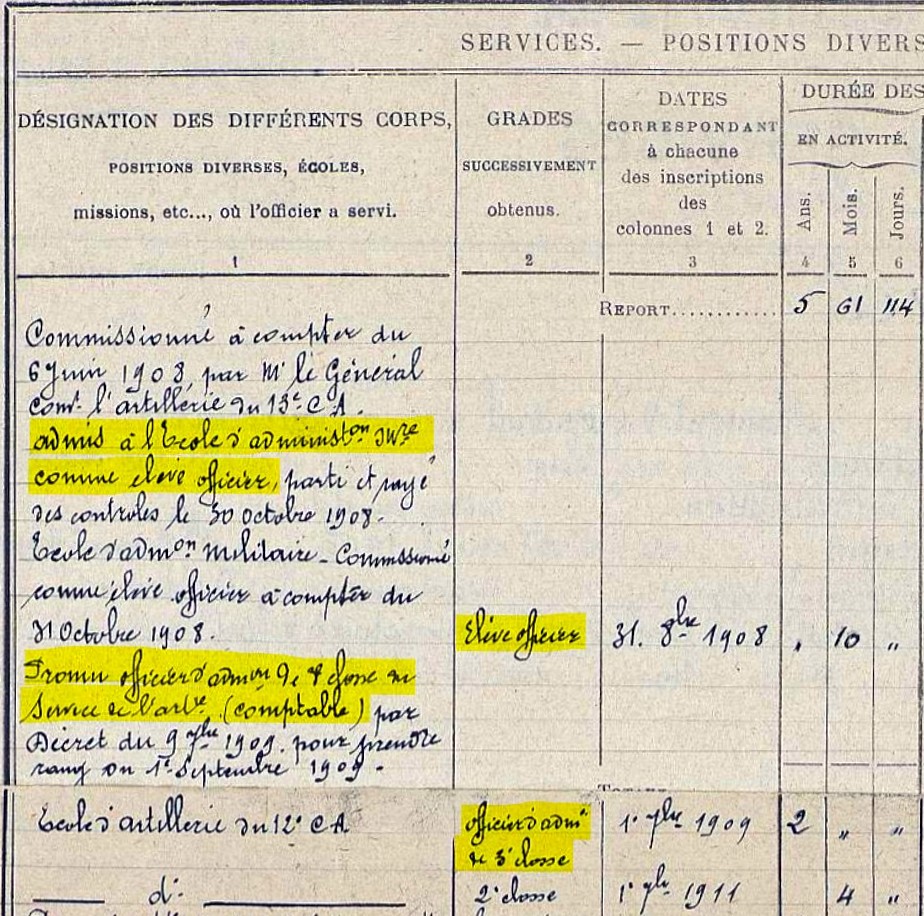 SERVICES. — POSITIONS DIVERS
DÉSIGNATION DES DIFFÉRENTS CORPS,
POSITIONS DIVERSES, ÉCOLES,
missions, etc..., où l'officier a servi.
1
GRADES
SUCCESSIVEMENT
obtenus.
2
DATES
CORRESPONDANT
à chacune
des inscriptions
des
colonnes 1 et 2.
3
DURÉE DES
EN ACTIVITÉ.
Ans.
4
Mois.
5
Jours.
6
REPORT............ 5 61 114
Commissionné à compter du
6 Juin 1908, par Mr le Général
comt l'artillerie du 13e C.A.
admis à l'Ecole d'administon
comme élevé officier, parti et rayé
des controles le 30 octobre 1908.
Ecole d'admon Militaire - Commissionné
comme élevé officier à compter du
31 Octobre 1908. Elève officier 31. 8bre 1908 " 10 "
Promu officier d'admon de classe du
Service de l'artie (comptable) par
Décret du 9 7bre 1909. pour prendre
rang du 1er Septembre 1909.
Ecole d'artillerie du 12e C A officier d'admon 1er 7bre 1909 2 " "
de 3e classe
d° 2e classe 1er 7bre 1911 4 "